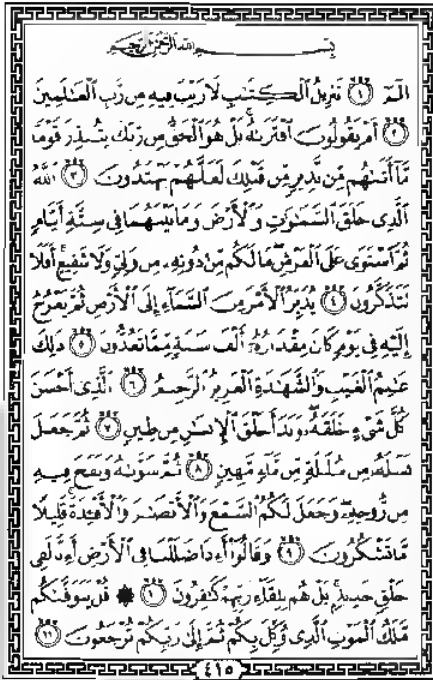 بِسْمِ اللَّهِ الرَّحْمَٰنِ الرَّحِيمِ
الٓمٓ ١ تَنزِيلُ ٱلْكِتَٰبِ لَا رَيْبَ فِيهِ مِن رَّبِّ ٱلْعَٰلَمِينَ
٢ أَمْ يَقُولُونَ ٱفْتَرَىٰهُ بَلْ هُوَ ٱلْحَقُّ مِن رَّبِّكَ لِتُنذِرَ قَوْمًا
مَّآ أَتَىٰهُم مِّن نَّذِيرٍ مِّن قَبْلِكَ لَعَلَّهُمْ يَهْتَدُونَ ٣ ٱللَّهُ
ٱلَّذِى خَلَقَ ٱلسَّمَٰوَٰتِ وَٱلْأَرْضَ وَمَا بَيْنَهُمَا فِى سِتَّةِ أَيَّامٍ
ثُمَّ ٱسْتَوَىٰ عَلَى ٱلْعَرْشِ مَا لَكُم مِّن دُونِهِۦ مِن وَلِىٍّ وَلَا شَفِيعٍ أَفَلَا
تَتَذَكَّرُونَ ٤ يُدَبِّرُ ٱلْأَمْرَ مِنَ ٱلسَّمَآءِ إِلَى ٱلْأَرْضِ ثُمَّ يَعْرُجُ
إِلَيْهِ فِى يَوْمٍ كَانَ مِقْدَارُهُۥٓ أَلْفَ سَنَةٍ مِّمَّا تَعُدُّونَ ٥ ذَٰلِكَ
عَٰلِمُ ٱلْغَيْبِ وَٱلشَّهَٰدَةِ ٱلْعَزِيزُ ٱلرَّحِيمُ ٦ ٱلَّذِىٓ أَحْسَنَ
كُلَّ شَىْءٍ خَلَقَهُۥ وَبَدَأَ خَلْقَ ٱلْإِنسَٰنِ مِن طِينٍ ٧ ثُمَّ جَعَلَ
نَسْلَهُۥ مِن سُلَٰلَةٍ مِّن مَّآءٍ مَّهِينٍ ٨ ثُمَّ سَوَّىٰهُ وَنَفَخَ فِيهِ
مِن رُّوحِهِۦ وَجَعَلَ لَكُمُ ٱلسَّمْعَ وَٱلْأَبْصَٰرَ وَٱلْأَفْـِٔدَةَ قَلِيلًا
مَّا تَشْكُرُونَ ٩ وَقَالُوٓا۟ أَءِذَا ضَلَلْنَا فِى ٱلْأَرْضِ أَءِنَّا لَفِى
خَلْقٍ جَدِيدٍۭ بَلْ هُم بِلِقَآءِ رَبِّهِمْ كَٰفِرُونَ ١٠ ۞ قُلْ يَتَوَفَّىٰكُم
مَّلَكُ ٱلْمَوْتِ ٱلَّذِى وُكِّلَ بِكُمْ ثُمَّ إِلَىٰ رَبِّكُمْ تُرْجَعُونَ ١١
٤١٥